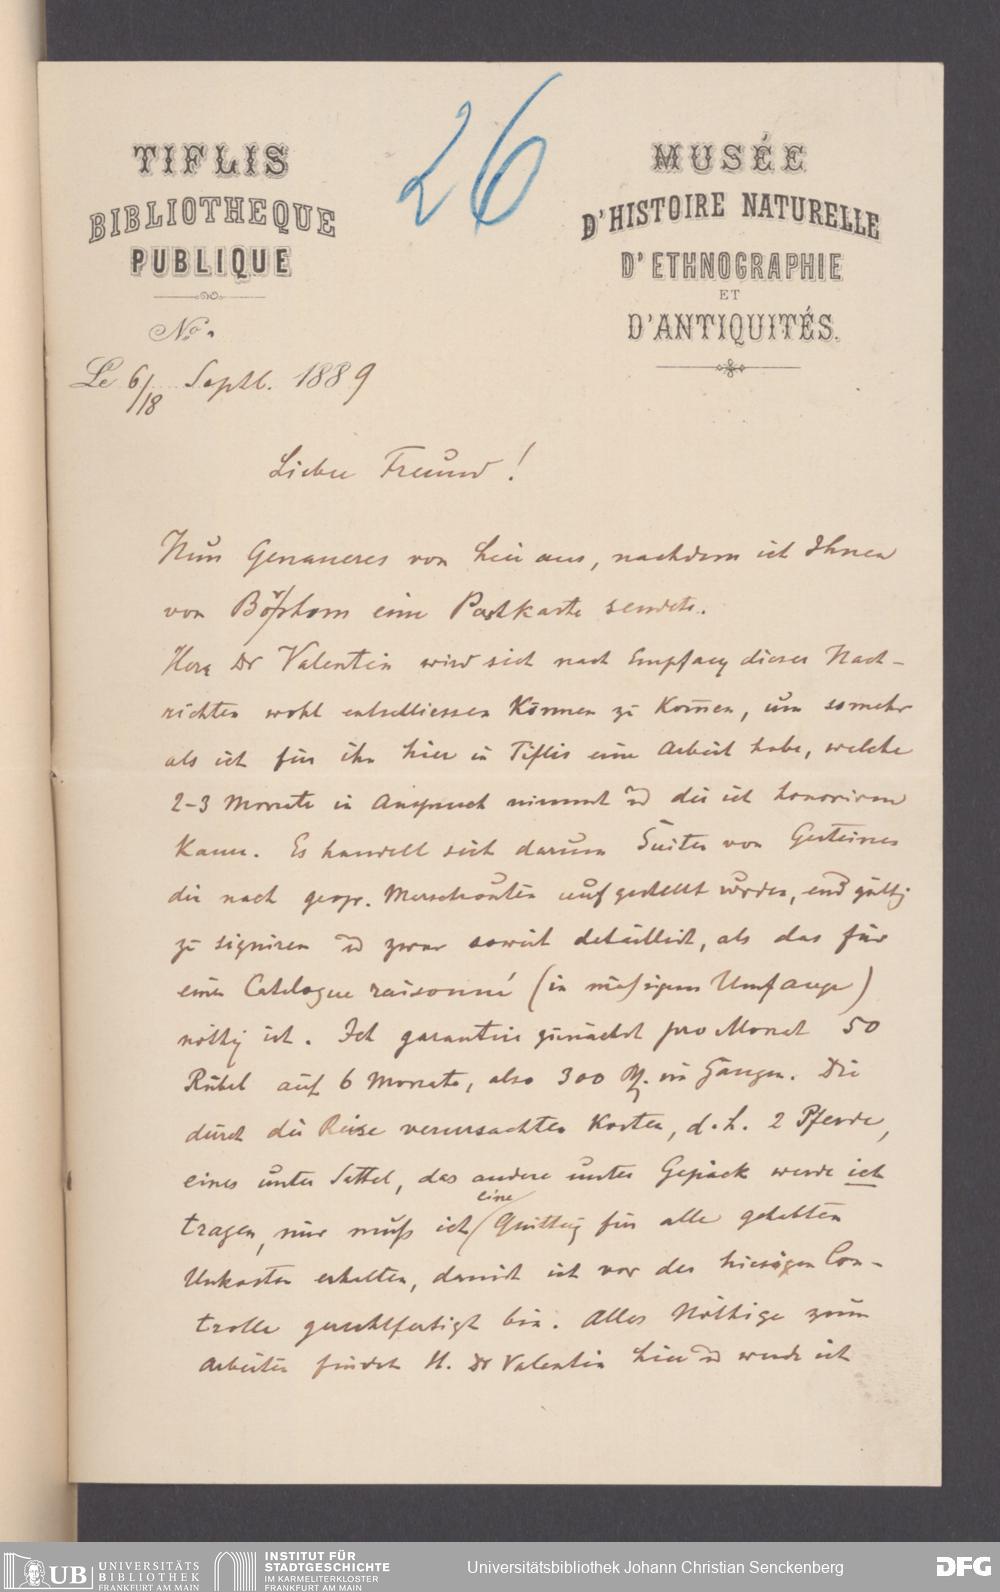 26
TIFLIS
BIBLIOTHEQUE
PUBLIQUE
No.
Le 6/18 Septb. 1889
MUSÉE
D'HISTOIRE NATURELLE
D'ETHNOGRAPHIE
ET
D'ANTIQUITÉS.
Lieber Freund!
Nun Genaueres von hier aus, nachdem ich Ihnen
von eine Postkarte sendete.
Herr Dr Valentin wird sich nach Empfang dieser Nach-
richten wohl entschliessen können zu kom̄en, um somehr
als ich für ihn hier in Tiflis eine Arbeit habe, welche
2-3 Monate in Anspruch nimmt u die ich honoriren
kann. Es handelt sich darum Suiten von Gesteinen
die nach geogr. aufgestellt wurden, endgültig
zu signiren u zwar soweit detaillirt, als das für
einen Catalogue raisonné (in mässigem Umfange)
nöthig ist. Ich garantire zunächst pro Monat 50
Rubel auf 6 Monate, also 300 R. im Ganzen. Die
durch die Reise verursachten Kosten, d.h. 2 Pferde,
eines unter Sattel, das andere unter Gepäck werde ich
tragen, nur muß ich eine Quittung für alle gehabten
Unkosten erhalten, damit ich vor der hiesigen Con-
trolle gerechtfertigt bin. Alles Nöthige zum
Arbeiten findet H. Dr Valentin hier u werde ich
UB UNIVERSITÄTS
BIBLIOTHEK
FRANKFURT AM MAIN
INSTITUT FÜR
STADTGESCHICHTE
IM KARMELITERKLOSTER
FRANKFURT AM MAIN
Universitätsbibliothek Johann Christian Senckenberg
DFG